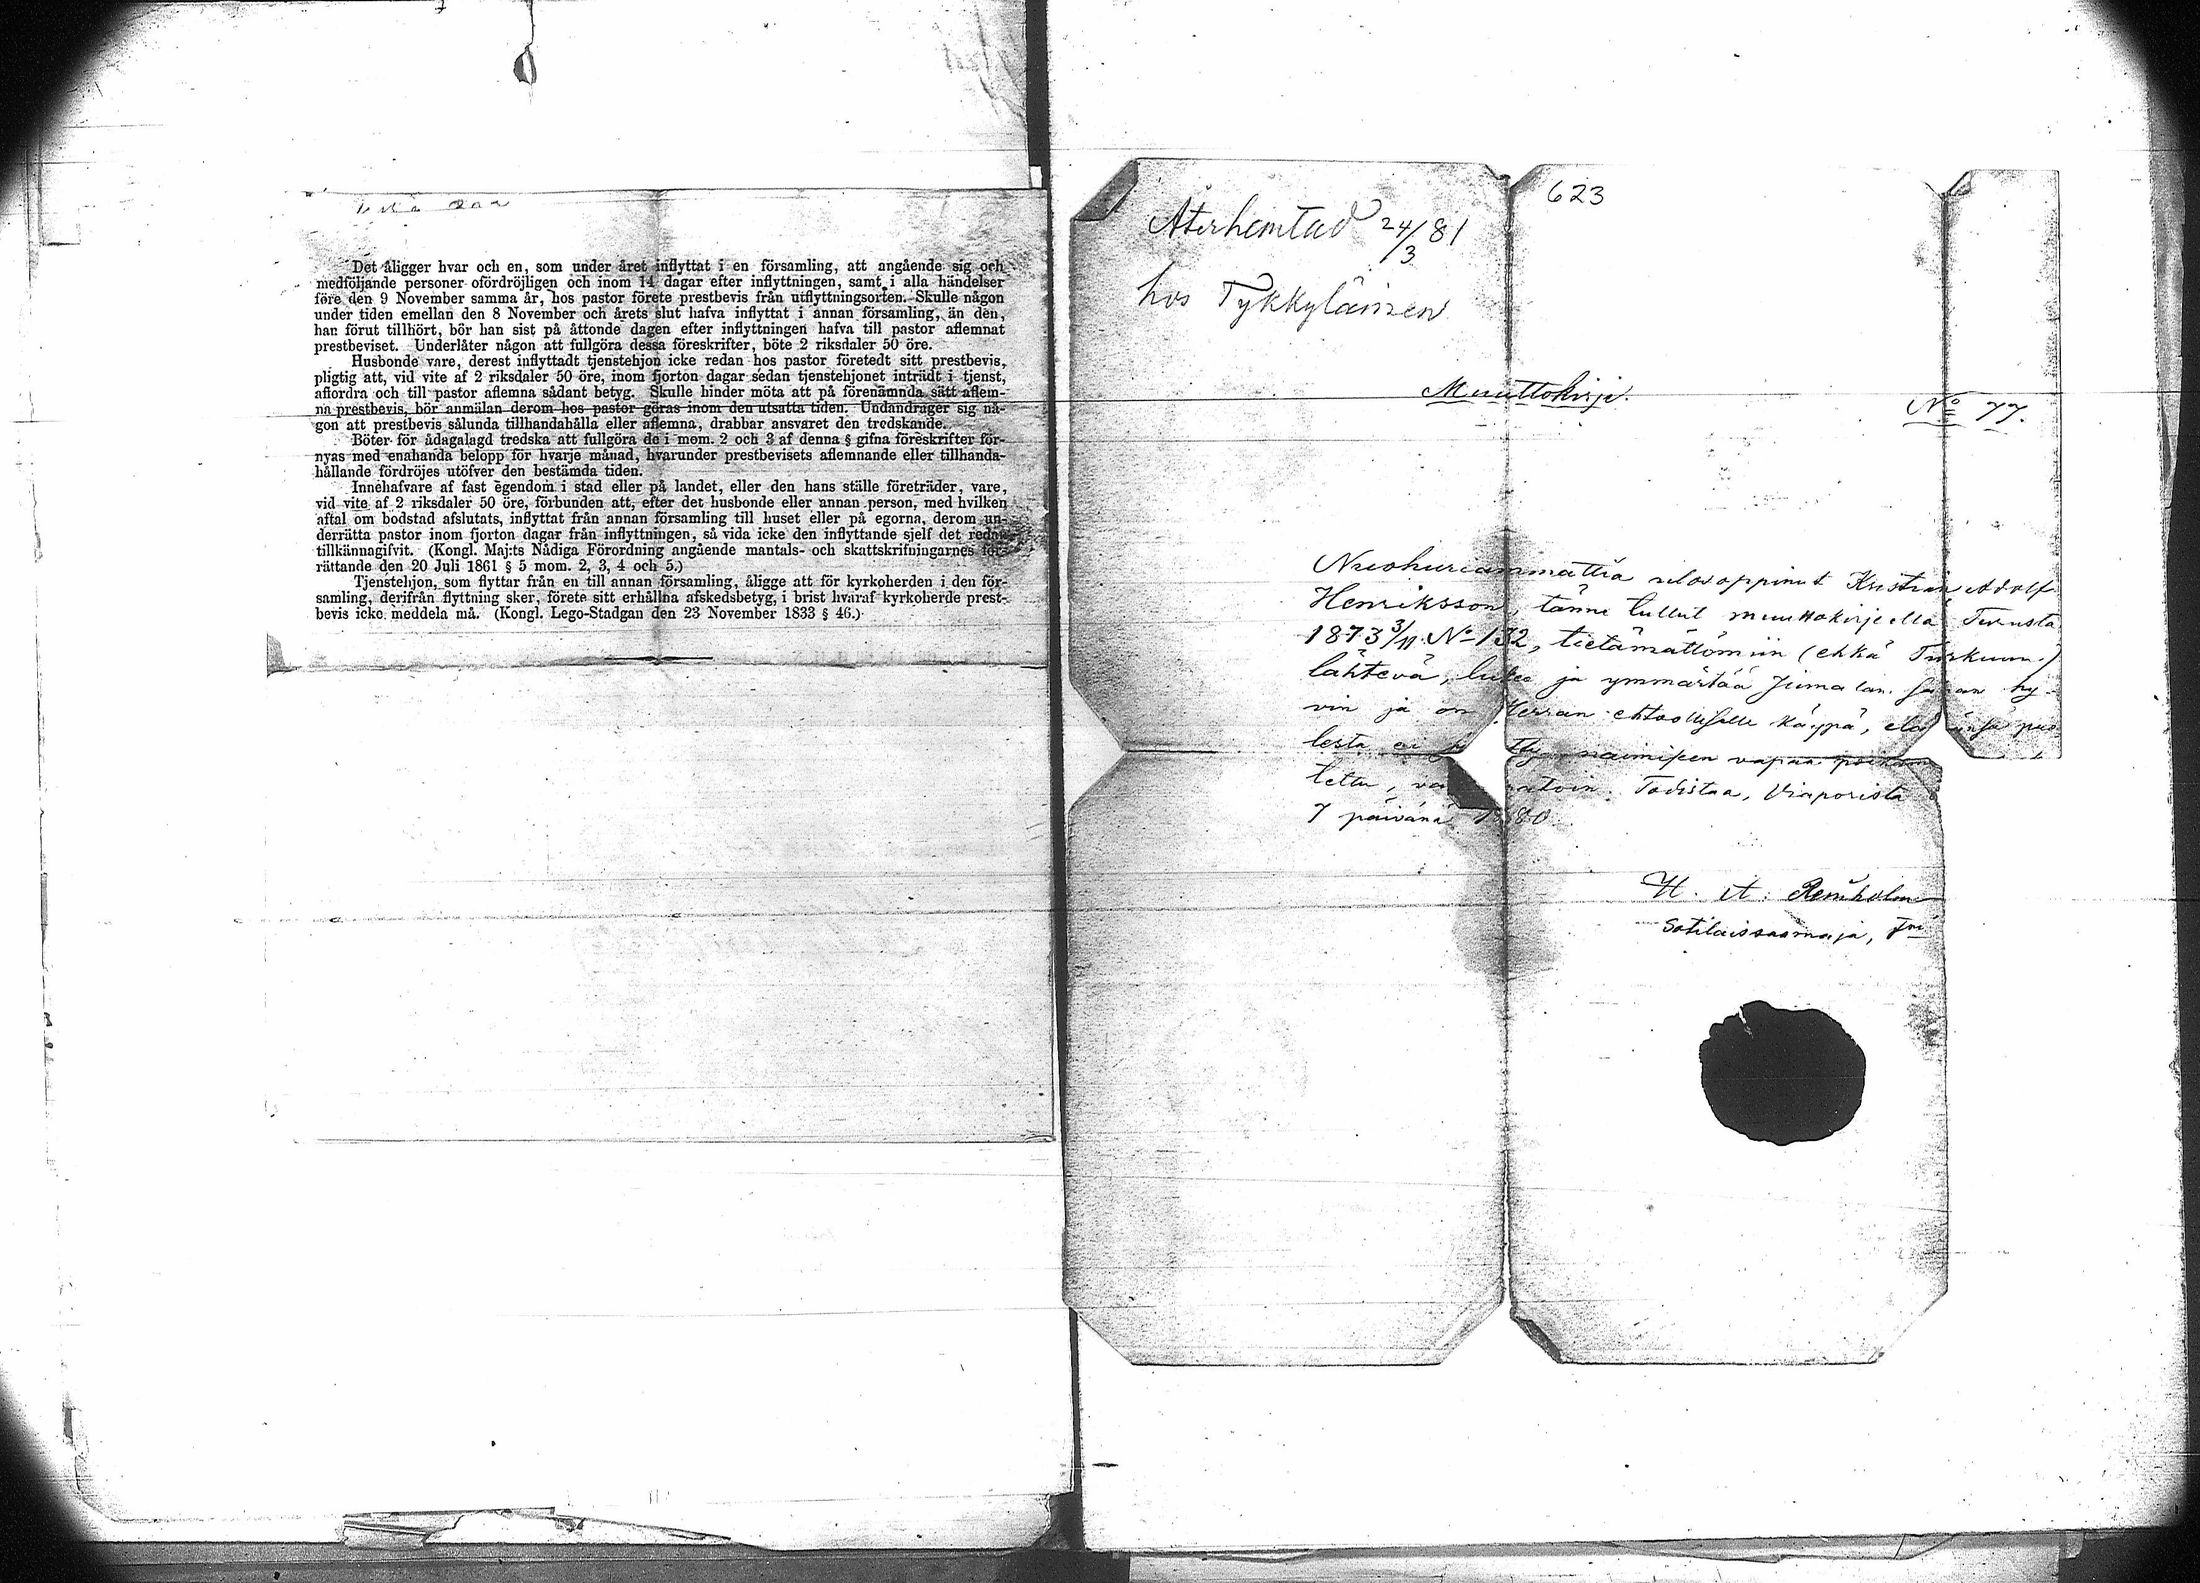 Det åligger hvar och en, som under året inflyttat i en församling, att angående sig och
medföljande personer ofördröjligen och inom 14 dagar efter inflyttningen, samt i alla händelser
före den 9 November samma år, hos pastor förete prestbevis från utflyttningsorten. Skulle någon
under tiden emellan den 8 November och årets slut hafva inflyttat i annan församling, än den,
han förut tillhört, bör han sist på åttonde dagen efter inflyttningen hafva till pastor aflemnat
prestbeviset. Underlåter någon att fullgöra dessa föreskrifter, böte 2 riksdaler 50 öre.
Husbonde vare, derest inflyttadt tjenstehjon icke redan hos pastor företedt sitt prestbevis,
pligtig att, vid vite af 2 riksdaler 50 öre, inom fjorton dagar sedan tjenstehjonet inträdt i tjenst,
affordra och till pastor aflemna sådant betyg. Skulle hinder möta att på förenämnda sätt aflem-
na prestbevis, bör anmälan derom hos pastor göras inom den utsatta tiden. Undandrager sig nå-
gon att prestbevis sålunda tillhandahålla eller aflemna, drabbar ansvaret den tredskande.
Böter för ådagalagd tredska att fullgöra de i mom. 2 och 3 af denna § gifna föreskrifter för-
nyas med enahanda belopp för hvarje månad, hvarunder prestbevisets aflemnande eller tillhanda-
hållande fördröjes utöfver den bestämda tiden.
Innehafvare af fast egendom i stad eller på landet, eller den hans ställe företräder, vare,
vid vite af 2 riksdaler 50 öre, förbunden att, efter det husbonde eller annan person, med hvilken
aftal om bodstad afslutats, inflyttat från annan församling till huset eller på egorna, derom un-
derrätta pastor inom fjorton dagar från inflyttningen, så vida icke den inflyttande sjelf det redan
tillkännagifvit. (Kongl. Maj:ts Nådiga Förordning angående mantals- och skattskrifningarnes för-
rättande den 20 Juli 1861 § 5 mom. 2, 3, 4 och 5.)
Tjenstehjon, som flyttar från en till annan församling, åligge att för kyrkoherden i den för-
samling, derifrån flyttning sker, förete sitt erhållna afskedsbetyg, i brist hvaraf kyrkoherde prest-
bevis icke meddela må. (Kongl. Lego-Stadgan den 23 November 1833 § 46.)
623
Återhemtad 24/3 81
hos Tykkyläinen
Muuttokirja.
No 77.
Nuohuriammattia ulosoppinut Kristian Adolf
Henriksson, tänne tullut muuttokirjalla Turusta
1873 3/11 No 132, tietämättömiin (ehkä Turkuun)
lähtevä, lukee ja ymmärtää Jumalan sanan hy-
vin ja on Herran ehtoolliselle käypä, elämänsä puo
lesta ei naimisen vapaa
tettu, Todistaa, Viaporista
7 päivänä 1880
H. A. Renholm
Sotilaissaarnaaja,